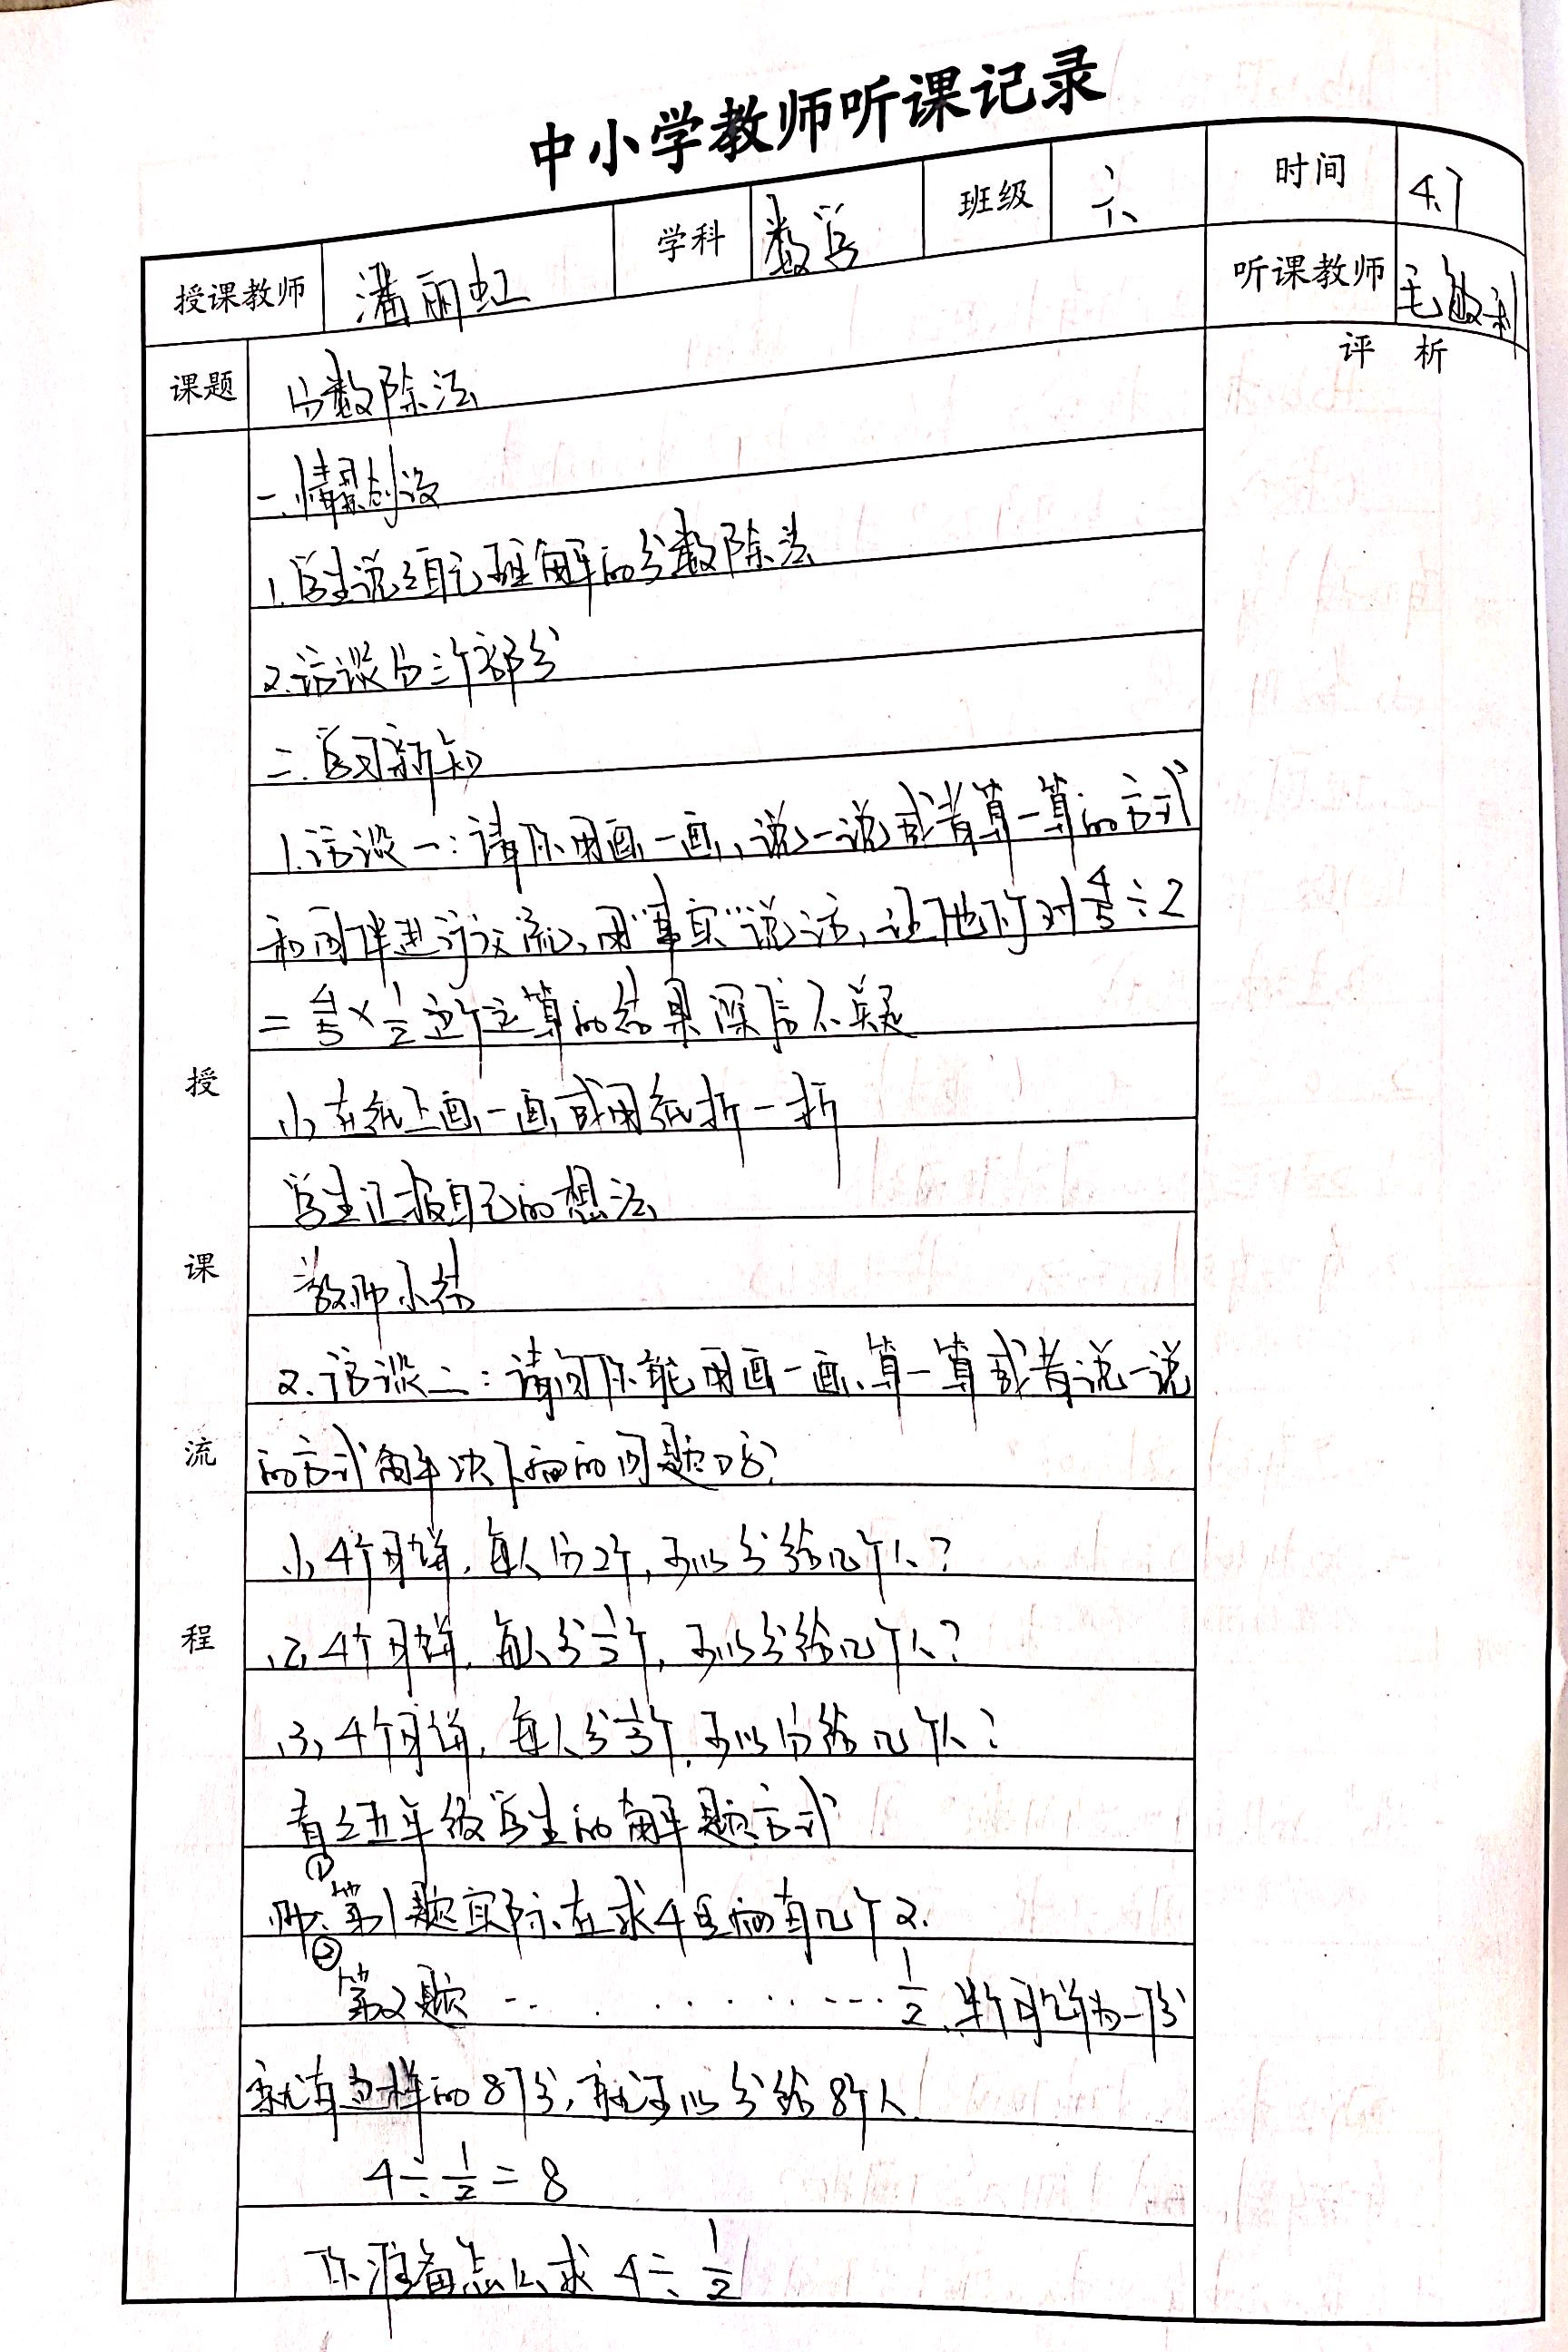 中小学教师听课记录
授课教师 潘丽虹 学科 数学 班级 六 时间 4.7
听课教师 毛敏利
课题 分数除法
评析
授课流程
一.情景创设
1.学生说说自己理解的分数除法
2.访谈分三个部分
二.学习新知
1.访谈一:请你用画一画,说一说或者算一算的方式
和同伴进行交流,用"事实"说话,让他们对4/5÷2
=4/5×1/2这个运算的结果深信不疑
(1)在纸上画一画或用纸折一折
学生汇报自己的想法
教师小结
2.访谈二:请问你能用画一画、算一算或者说一说
的方式解决下面的问题吗?
(1)4个月饼,每人分2个,可以分给几个人?
(2)4个月饼,每人分1/2个,可以分给几个人?
(3)4个月饼,每人分1/3个,可以分给几个人?
看看五年级学生的解题方式
师:①第1题实际在求4里面有几个2.
②第2题……………1/2,半个月饼为一份
就有这样的8份,就可以分给8个人.
4÷1/2=8
你准备怎么求4÷1/2